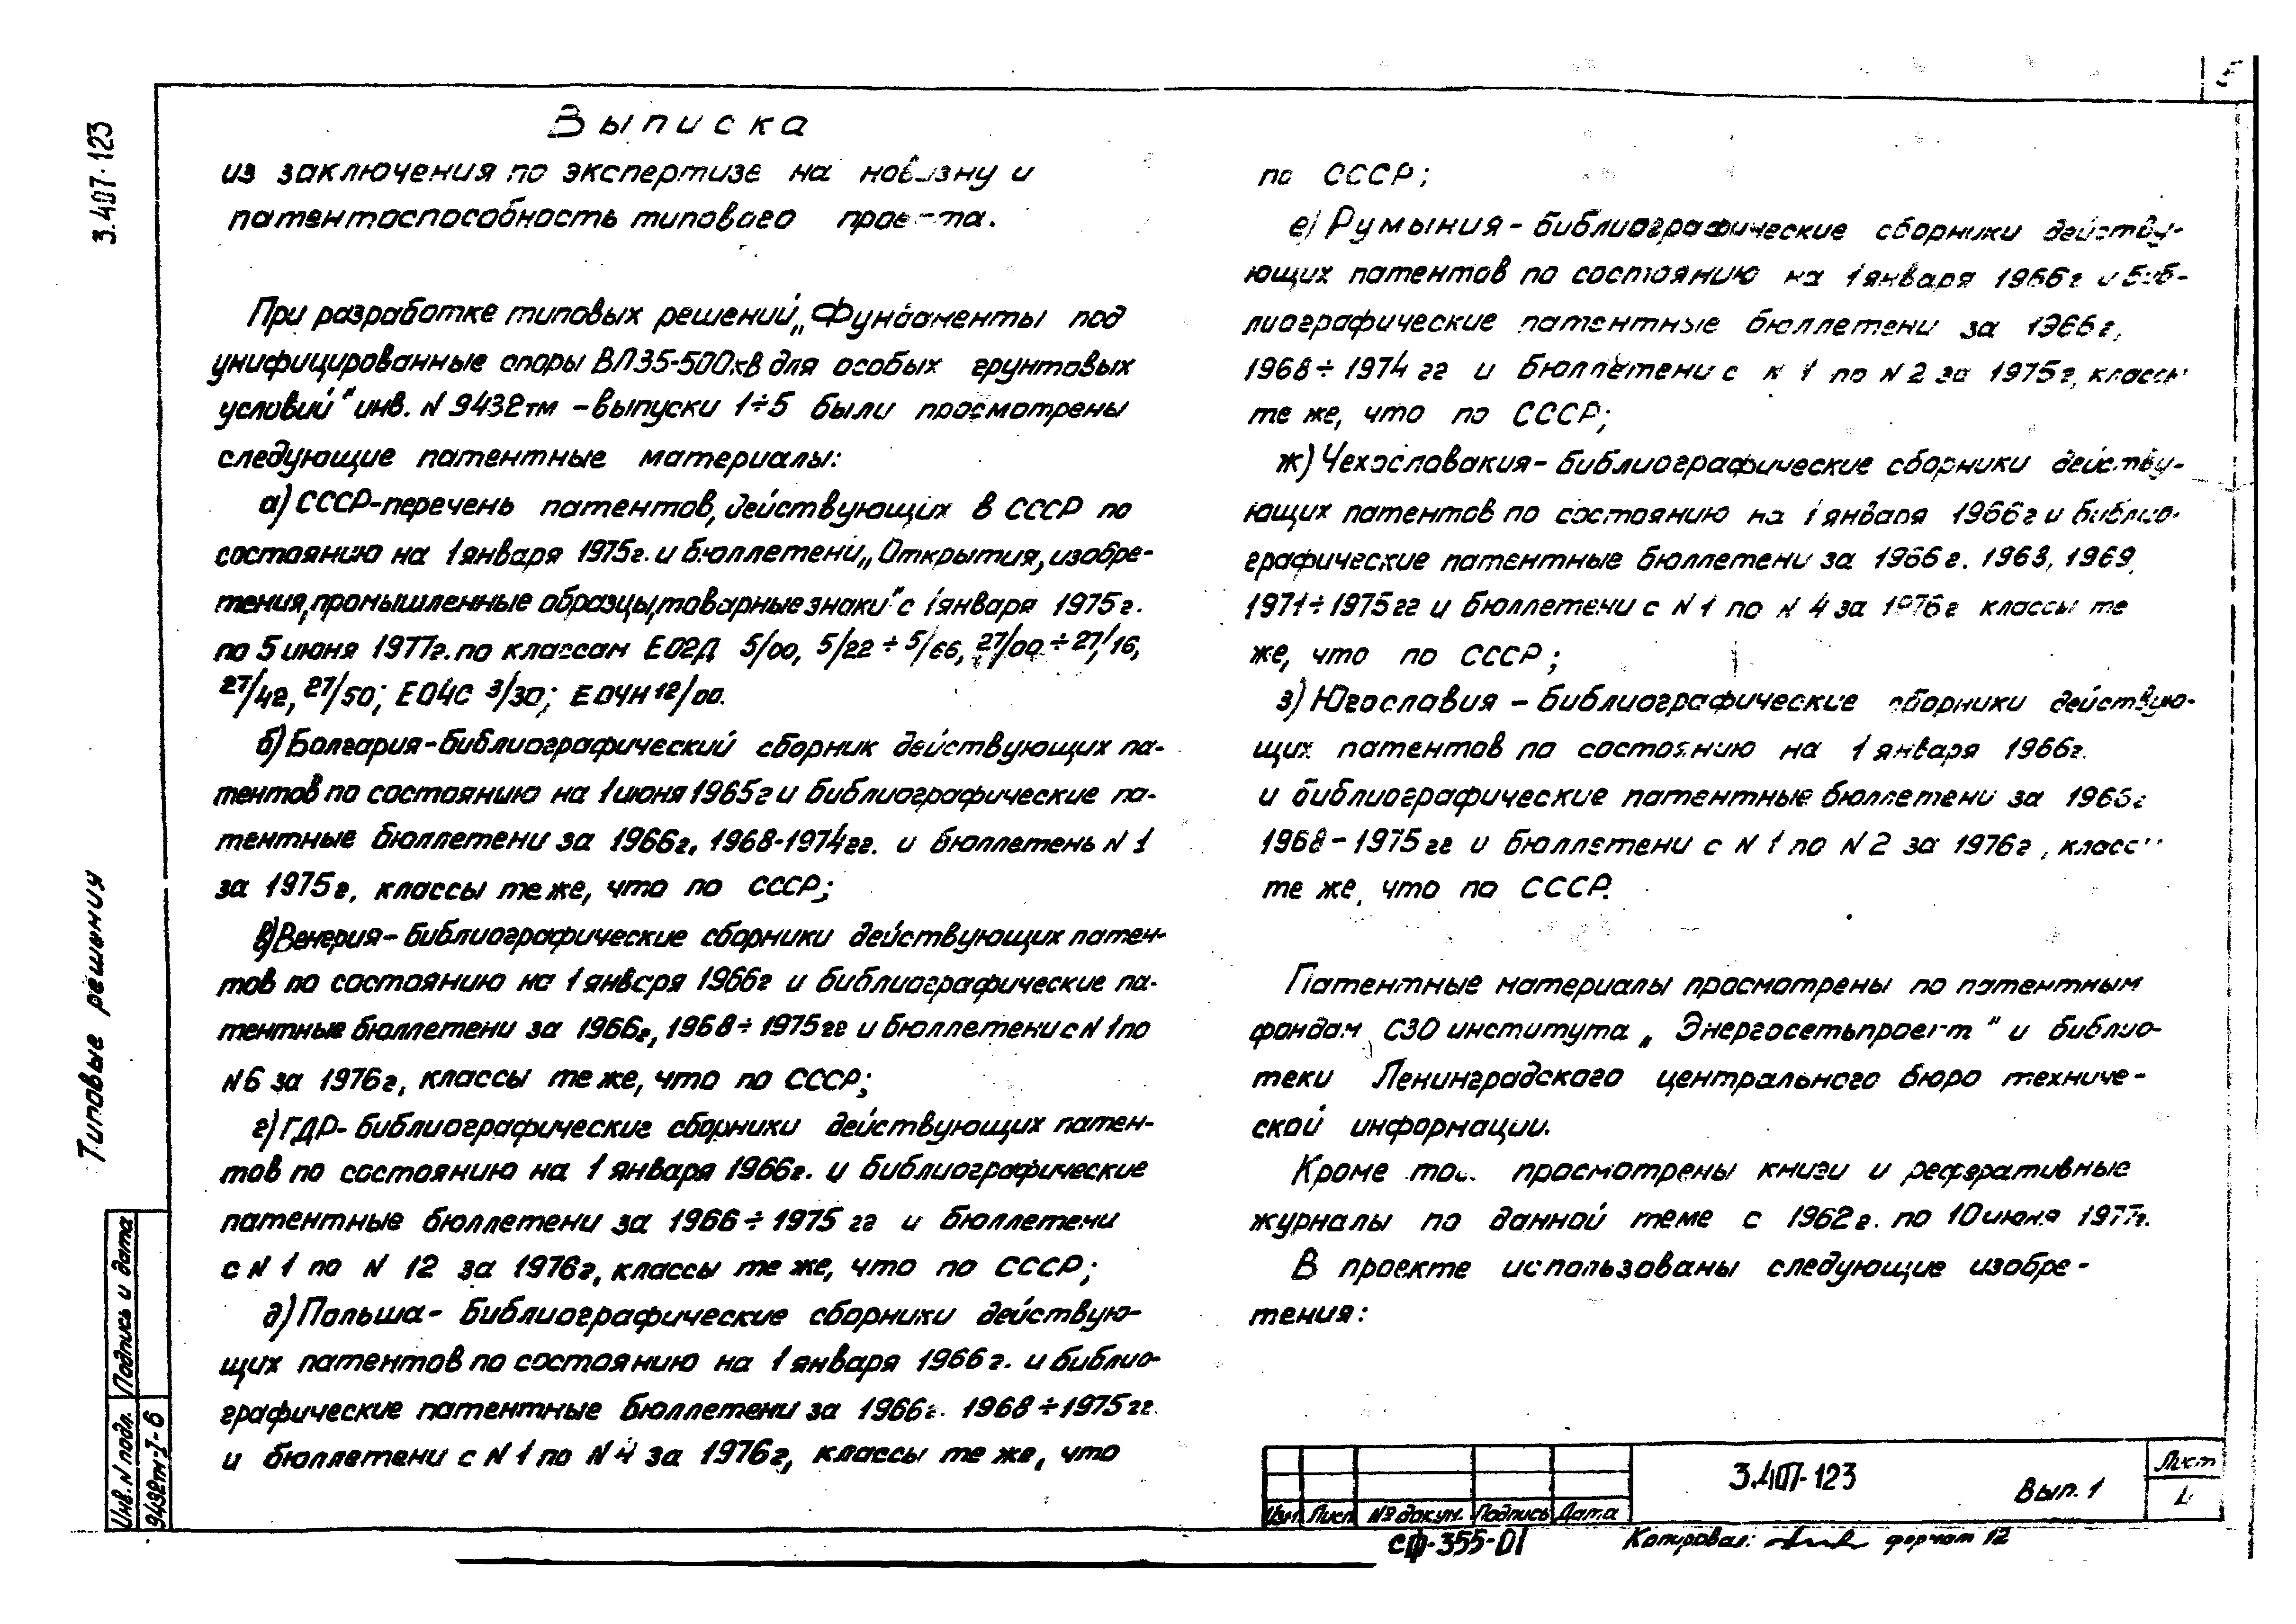 3.407-123
Типовые решения
Выписка
из заключения по экспертизе на новизну и
патентоспособность типового проекта.
При разработке типовых решений „Фундаменты под
унифицированные опоры ВЛ35-500кв для особых грунтовых
условий" инв. N 9432тм - выпуски 1÷5 были просмотрены
следующие патентные материалы:
а) СССР-перечень патентов, действующих в СССР по
состоянию на 1 января 1975г. и бюллетени „Открытия, изобре-
тения, промышленные образцы, товарные знаки" с 1 января 1975г.
по 5 июня 1977г. по классам Е02Д 5/00, 5/22 ÷ 5/66, 27/00 ÷ 27/16,
27/42, 27/50; Е04С 3/30; Е04Н 12/00.
б) Болгария-библиографический сборник действующих па-
тентов по состоянию на 1 июня 1965г и библиографические па-
тентные бюллетени за 1966г, 1968-1974гг. и бюллетень N 1
за 1975г, классы те же, что по СССР;
в) Венгрия-библиографические сборники действующих патен-
тов по состоянию на 1 января 1966г и библиографические па-
тентные бюллетени за 1966г, 1968÷1975гг и бюллетени с N 1 по
N6 за 1976г, классы те же, что по СССР;
г) ГДР-библиографические сборники действующих патен-
тов по состоянию на 1 января 1966г. и библиографические
патентные бюллетени за 1966÷1975 гг и бюллетени
с N 1 по N 12 за 1976г, классы те же, что по СССР;
д) Польша- библиографические сборники действую-
щих патентов по состоянию на 1 января 1966г. и библио-
графические патентные бюллетени за 1966г. 1968÷1975гг.
и бюллетени с N 1 по N 4 за 1976г, классы те же, что
по СССР;
е) Румыния - библиографические сборники действу-
ющих патентов по состоянию на 1 января 1966г и биб-
лиографические патентные бюллетени за 1966г,
1968÷1974 гг и бюллетени с N 1 по N 2 за 1975г, классы
те же, что по СССР;
ж) Чехословакия- библиографические сборники действу-
ющих патентов по состоянию на 1 января 1966г и библио-
графические патентные бюллетени за 1966г. 1968, 1969,
1971÷1975гг и бюллетени с N 1 по N 4 за 1976г классы те
же, что по СССР;
з) Югославия - библиографические сборники действую-
щих патентов по состоянию на 1 января 1966г.
и библиографические патентные бюллетени за 1966г
1968-1975гг и бюллетени с N 1 по N 2 за 1976г, классы
те же, что по СССР.
Патентные материалы просмотрены по патентным
фондам СЗО института „Энергосетьпроект" и библио-
теки Ленинградского центрального бюро техниче-
ской информации.
Кроме просмотрены книги и реферативные
журналы по данной теме с 1962г. по 10 июня 1977г.
В проекте использованы следующие изобре-
тения:
Подпись и дата
Инв. N подл.
9432тм-I-6
Изм Лист № докум. Подпись Дата
3.407-123
Вып. 1
Лист
4
сф-355-01
Копировал: формат 12